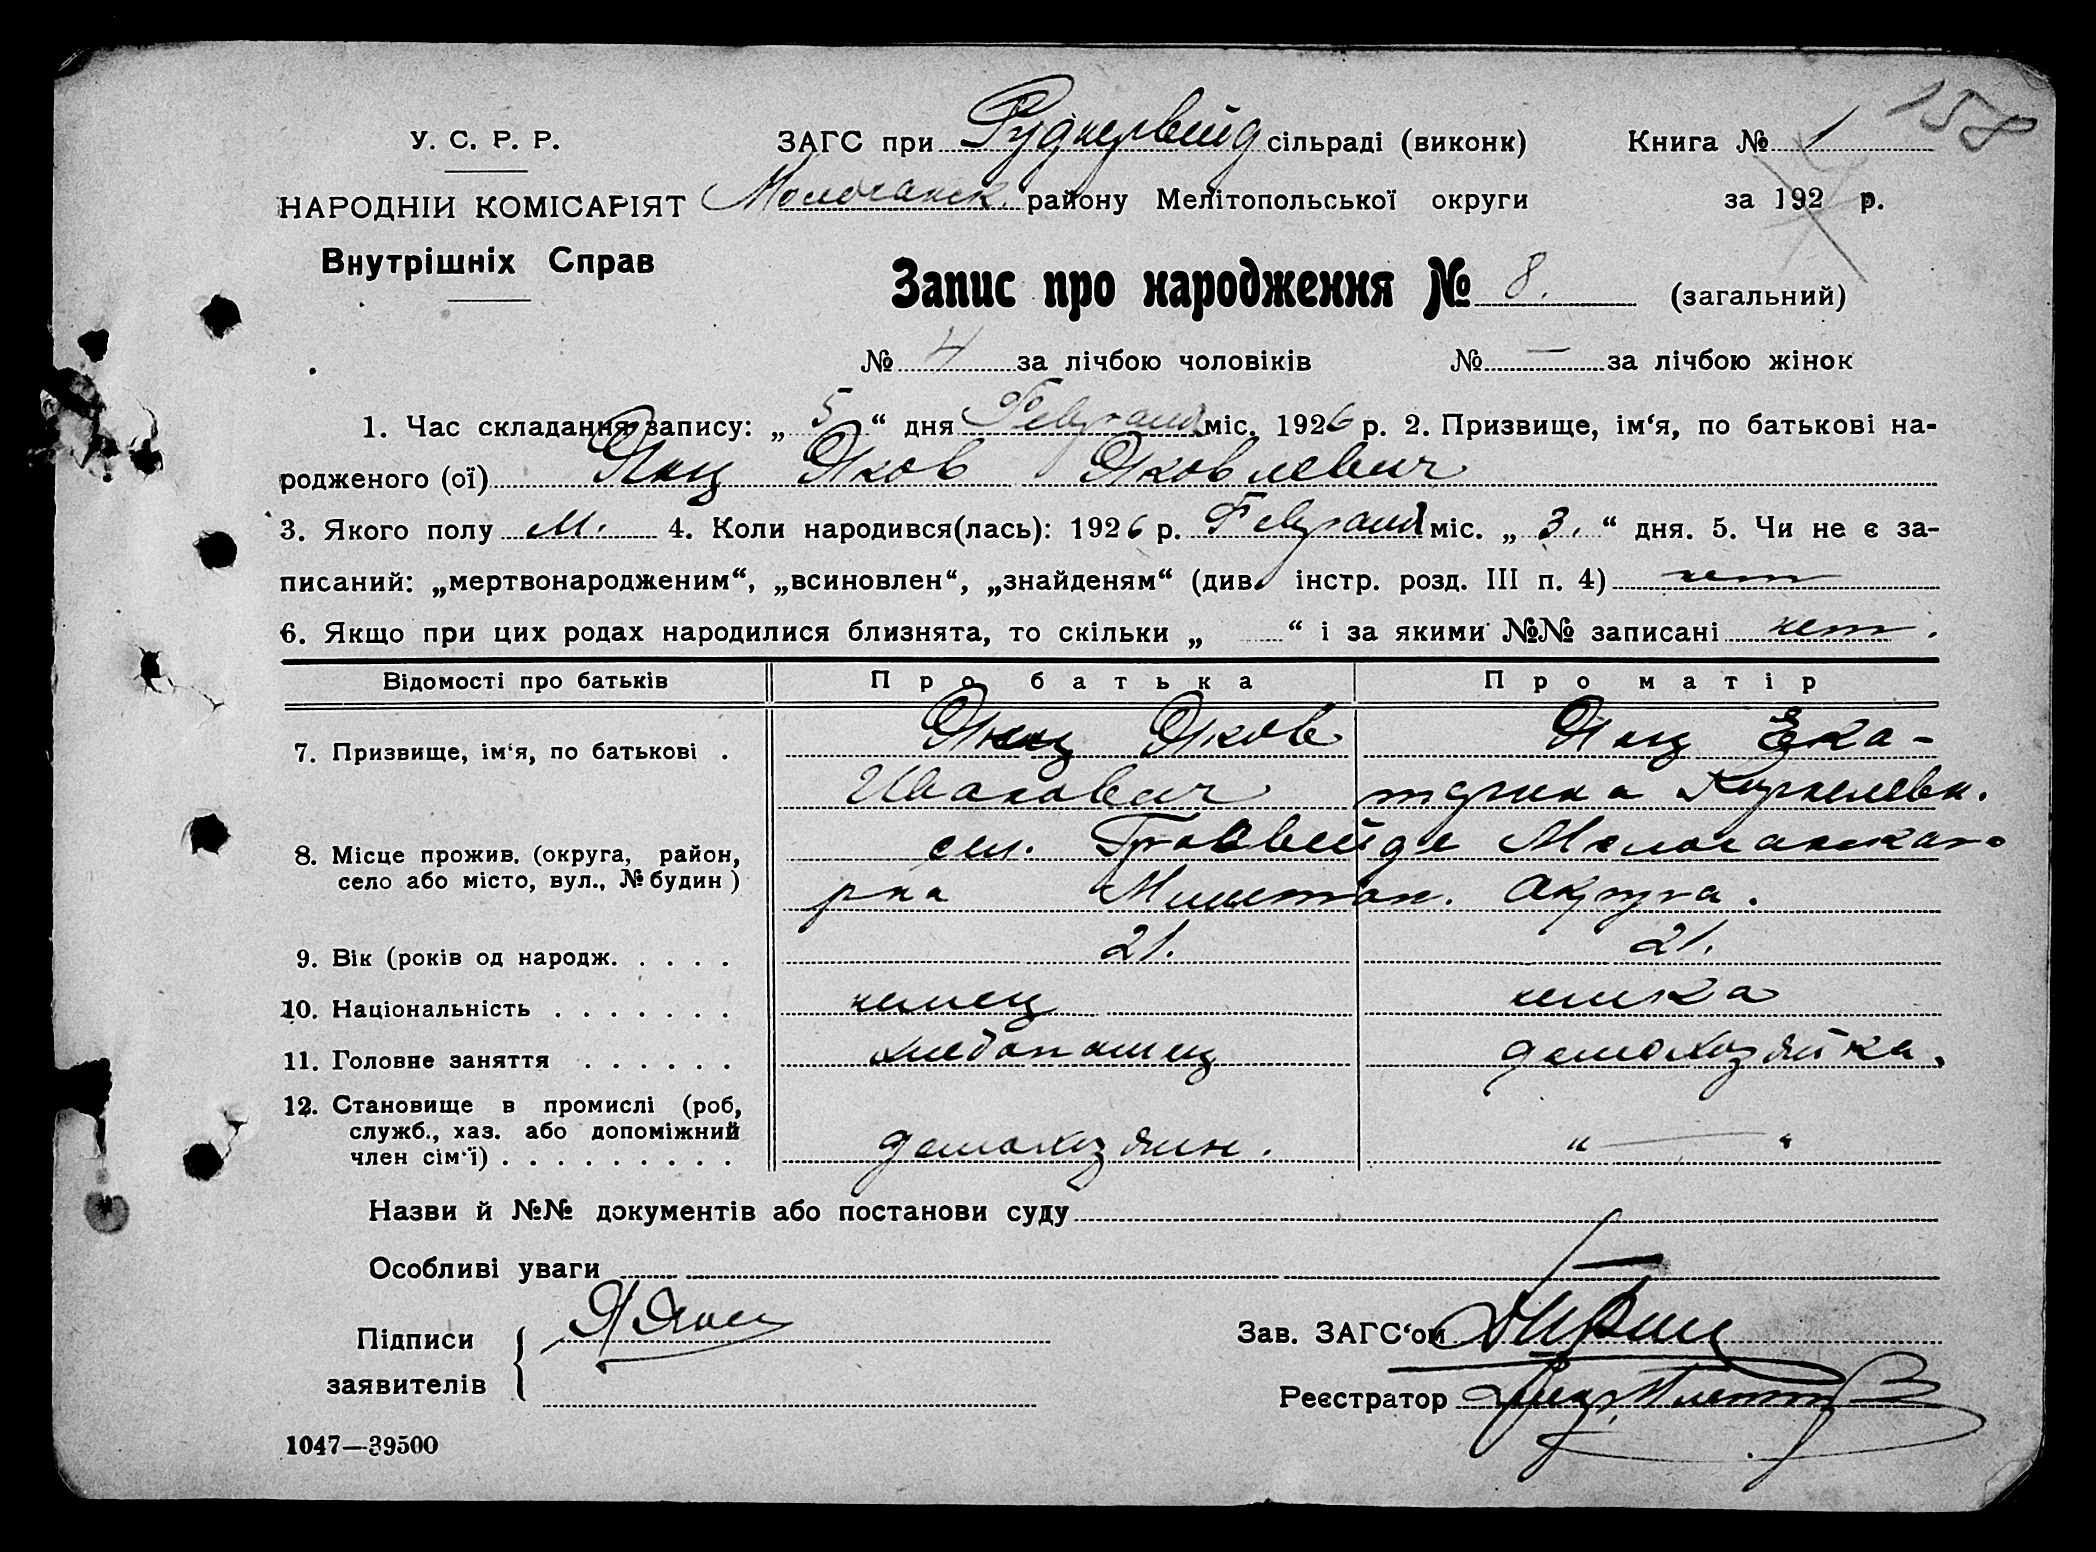 158
У. С. Р. Р.
НАРОДНІЙ КОМІСАРІЯТ
Внутрішніх Справ
ЗАГС при Руднервейд сільраді (виконк)
Книга № 1
Молочанск. району Мелітопольської округи
за 192 р.
Запис про народження № 8. (загальний)
№ 4 за лічбою чоловіків № — за лічбою жінок
1. Час складання запису: „ 5 “ дня міс. 1926 р. 2. Призвище, ім‘я, по батькові на-
родженого (ої) Янц Яков Яковлевич
3. Якого полу м. 4. Коли народився(лась): 1926 р. міс. „ 3. “ дня. 5. Чи не є за-
писаний: „мертвонародженим“, „всиновлен“, „знайденям“ (див. інстр. розд. III п. 4) нет
6. Якщо при цих родах народилися близнята, то скільки „ “ і за якими №№ записані нет.
Відомості про батьків Про батька Про матір
7. Призвище, ім‘я, по батькові . Янц Яков Янц Ека-
Иванович терина Корнелевн.
8. Місце прожив. (округа, район,
село або місто, вул., № будин)
сел. Гросвейде Молочанскаго
рна Мелитоп. Округа.
9. Вік (років од народж. . . . . 21. 21.
10. Національність . . . . . . . немец немка
11. Головне заняття . . . . . . хлебопашец домохозяйка.
12. Становище в промислі (роб,
служб., хаз. або допоміжний
член сім‘ї) . . . . . . . . . домохозяин. “ — “
Назви й №№ документів або постанови суду
Особливі уваги
Підписи
заявителів
Я Янц
Зав. ЗАГС‘ом
Реєстратор
1047—39500